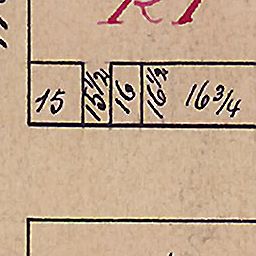 15 15½ 16 16½ 16¾